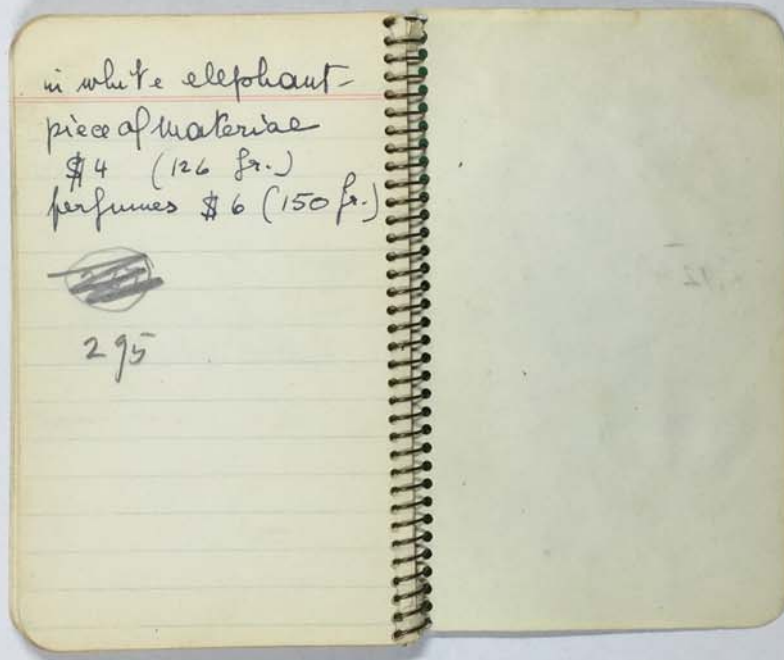 in white elephant-
piece of material
$4 (126 fr.)
perfumes $6 (150 fr.)
295